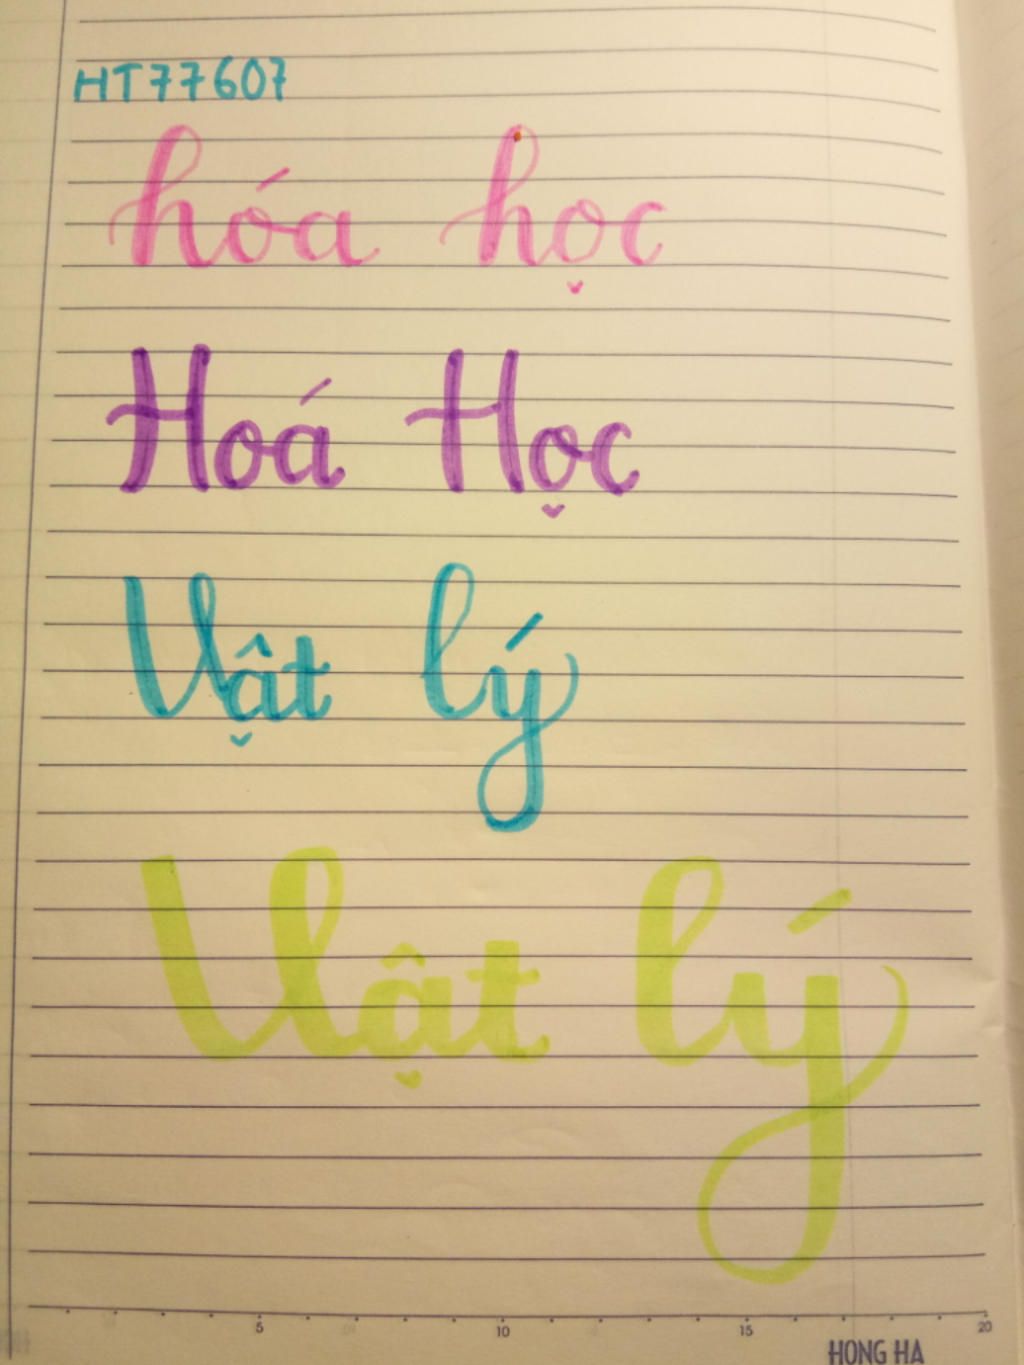 HT77607
hóa học
Hoá Học
Vật lý
Vật lý
5 10 15 20
HONG HA